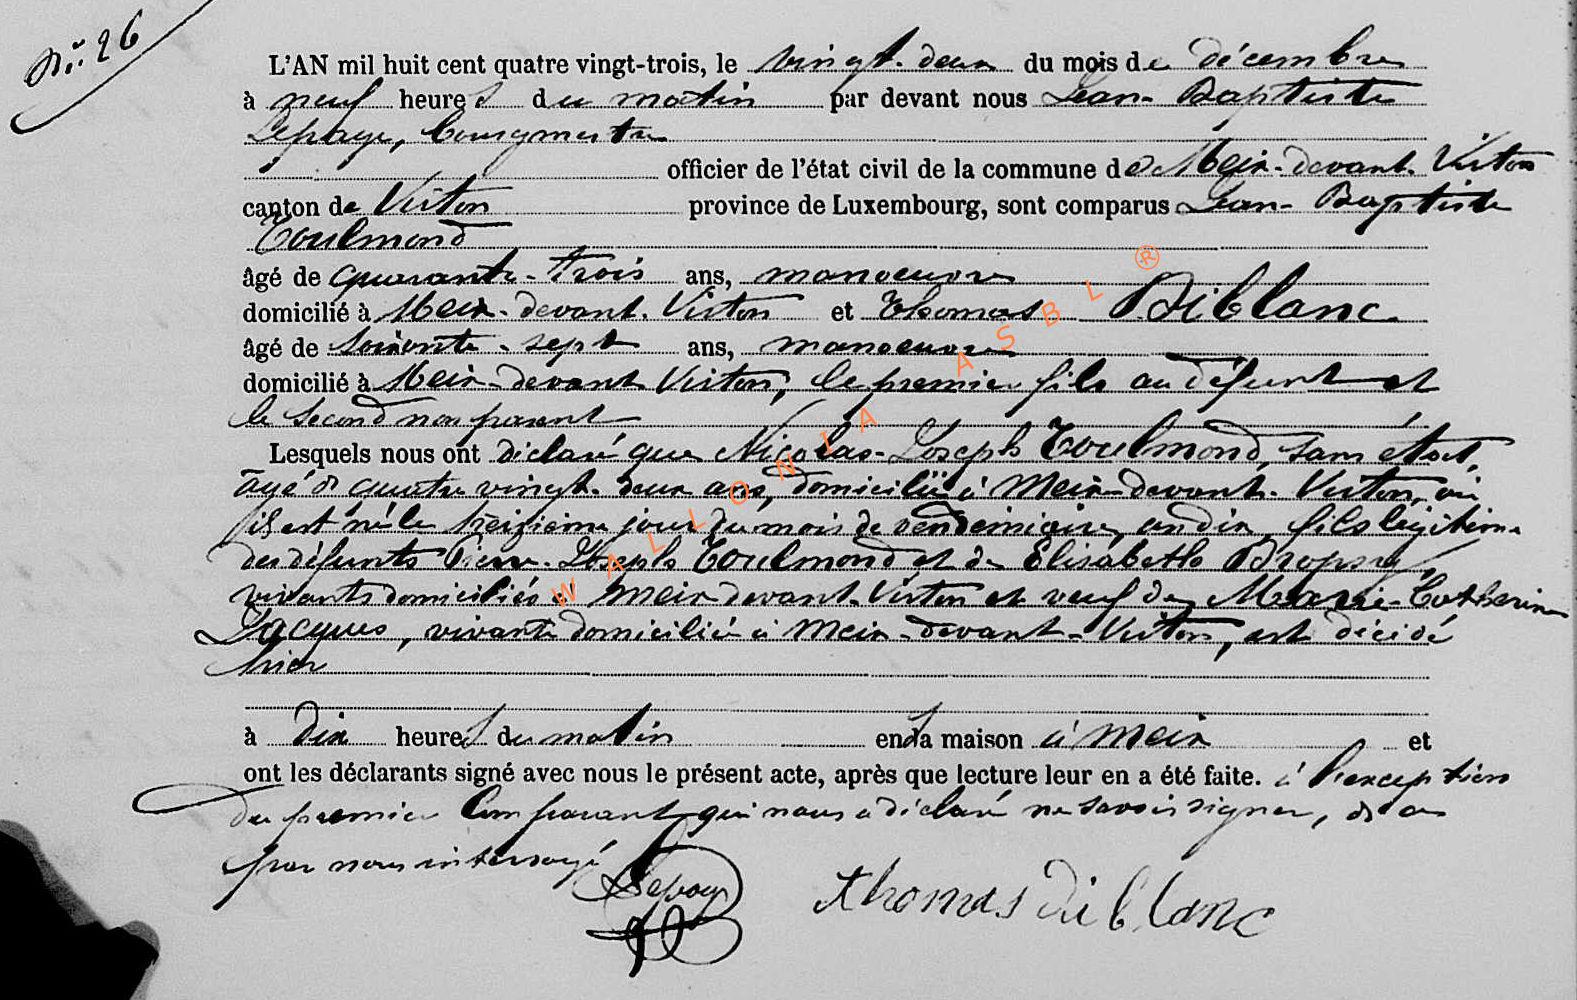 N.° 26
L'AN mil huit cent quatre vingt-trois, le vingt-deux du mois de décembre
à neuf heures du matin par devant nous Jean-Baptiste
Lepage, bourgmestre
officier de l'état civil de la commune de Meix-devant-Virton
canton de Virton province de Luxembourg, sont comparus Jean-Baptiste
Toulmond
âgé de quarante-trois ans, manoeuvre
domicilié à Meix-devant-Virton et Thomas Diblanc
âgé de soixante-sept ans, manoeuvre
domicilié à Meix-devant Virton, le premier fils au défunt et
le second non parent
Lesquels nous ont déclaré que Nicolas-Joseph Toulmond, sans état,
âgé de quatre vingt-deux ans, domicilié à Meix-devant-Virton, où
il est né le treizième jour du mois de vendémiaire, an dix, fils légitime
des défunts Pierre-Joseph Toulmond et de Elisabeth
vivants domiciliés à Meix devant-Virton et veuf de Marie-Catherine
Jacques, vivante domiciliée à Meix-devant-Virton, est décédé
hier
à dix heures du matin en sa maison à Meix et
ont les déclarants signé avec nous le présent acte, après que lecture leur en a été faite. à l'exception
du premier Comparant qui nous a déclaré ne savoir signer, de ce
par nous interrogé
Lepage
thomas diblanc
WALLONIA ASBL ®